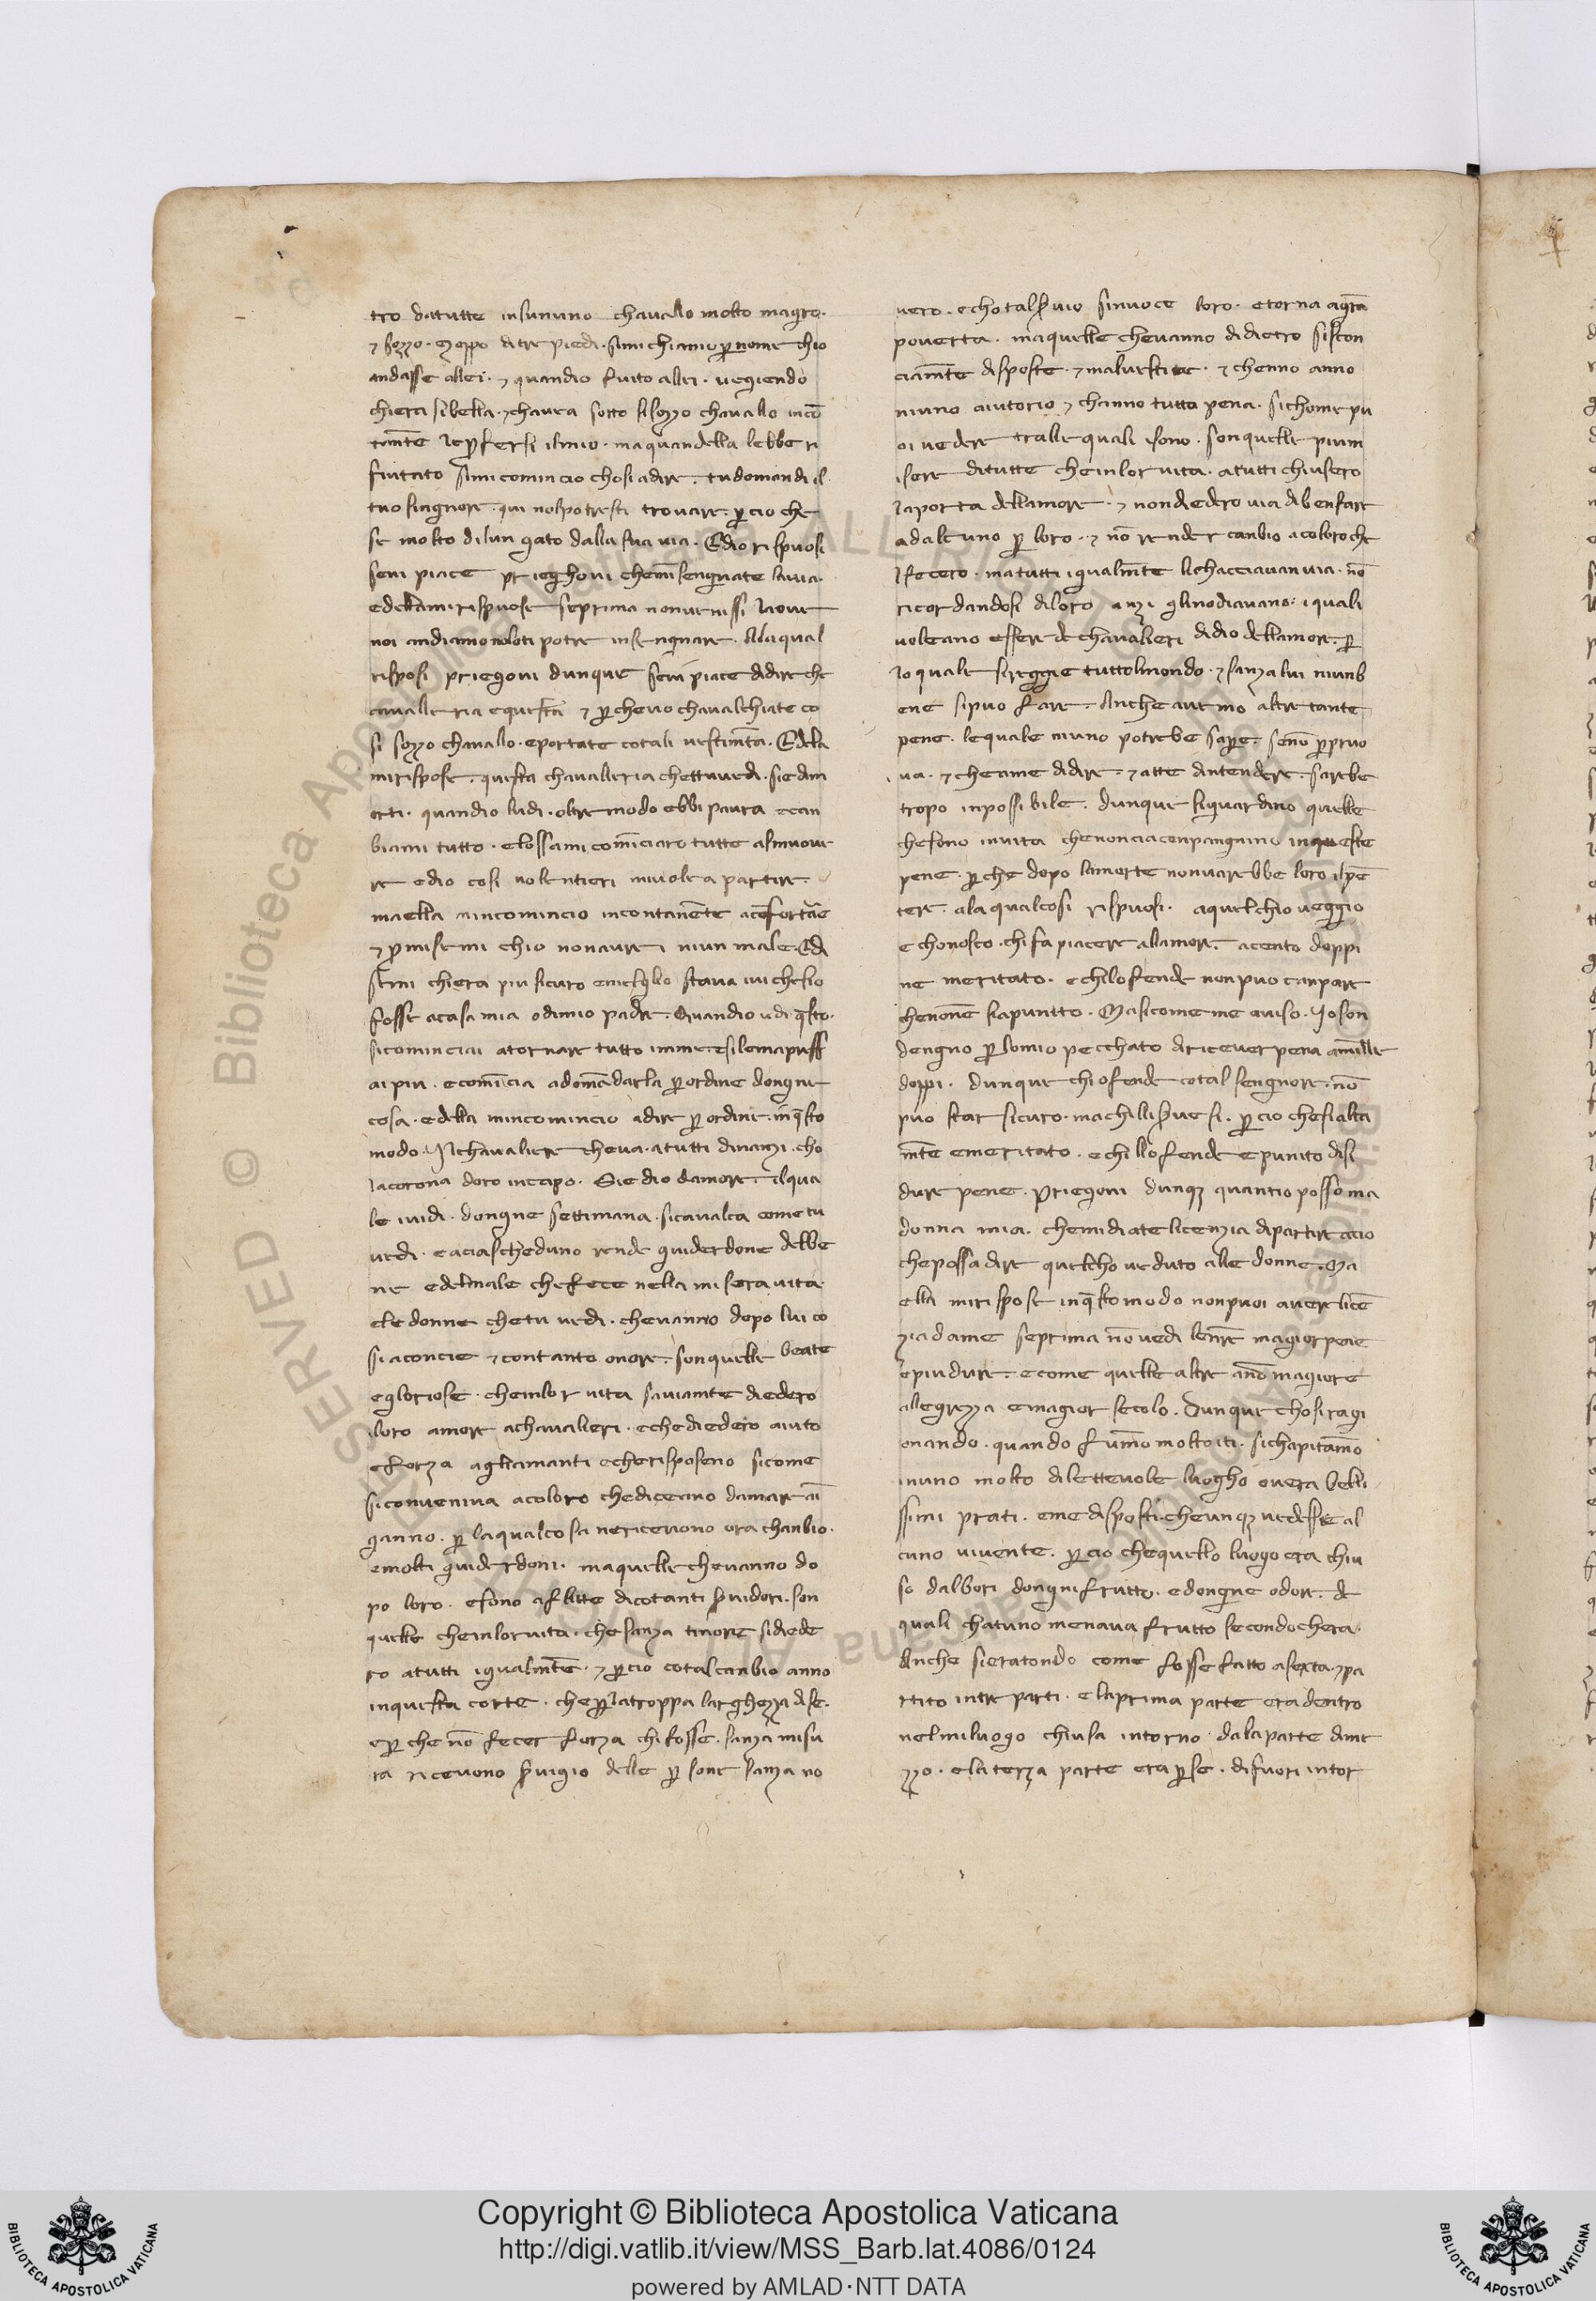 tro datutte insununo chauallo molto magro.
⁊ sozzo. Zoppo ditre piedi. simi chiamo ꝑ nome chio
andasse allei. ⁊ quandio fuito allei. uegiendo
chiera sibella. ⁊ chaura sotto sisozzo chauallo incō
tanēte le ꝓfersi ilmio. maquandella lebbe ri
fiutato simi comincio chosi adire. tudomandi il
tuo singnore. qui nolpotresti trouare. ꝑ cio che
se molto dilungato dalla sua uia. Edio rispuosi
seui piace prieghoui chemīsengniate lauia.
edellami rispuose seprima nonuenissi laoue
noi andiamo noloti potre insengnare. Alaqual
risposi priegoui dunque seui piace didire che
caualleria equesta ⁊ ꝑ cheuo chaualchiate co
si sozzo chauallo. eportate cotali uestimēta. Edela
mirispose. questa chaualleria chettuuedi. siedim
orti. quandio ludi. oltremodo ebbi paura ecan
biami tutto. elossami comīciaro tutte asmuoue
re edio cosi uolentieri miuolea partire.
maella mincomincio incontanēte acōfortare
⁊ ꝓmisemi chio nonaure niun male. Edi
semi chiera piu sicuro emeglio staua iui chesio
fosse acasa mia odimio padre. Quandio udi q̄sto.
sicominciai atornare tutto inme. esilemapress
ai piu. ecomīcia adomādarla ꝑ ordine dongne
cosa. edella mincomincio adire ꝑ ordine. inq̄sto
modo. Ilchaualiere cheua. atutti dinanzi. cho
lacorona doro incapo. Sie dio damore. ilqua
le iuidi. dongne settimana. sicaualca come tu
uedi. eaciascheduno rende guiderdone delbe
ne edelmale chefece nella misera uita.
ele donne chetu uedi. cheuanno dopo lui co
si aconcie ⁊ contanto onore. sonquelle beate
egloriose. cheinlor uita sauiamte diedero
iloro amore achaualieri. echediedero aiuto
eforza agliamanti echerisposeno sicome
siconueniua acoloro chediceano damare aī
ganno. ꝑ laqualcosa nericeuono ora chanbio.
emolti guiderdoni. maquelle cheuanno do
po loro. esono aflitte dicotanti ẜuidori. son
quelle cheinloruita. che sanza timore sidiede
ro atutti igualmēte. ⁊ ꝑcio cotalcanbio anno
inquesta corte. cheꝑ latroppa larghezza dise.
eꝑ che nō fecer forza chi fosse. sanza misu
ra riceuono ẜuigio delle ꝑsone sanza no
uero. echotalẜuio sinuoce loro. etorna agrā
pouerta. maquelle cheuanno didietro siscon
ciamēte disposte. ⁊ maluestite. ⁊ chenno anno
niuno aiutorio ⁊ channo tutta pena. sichome pu
oi uedere tralle quali isono. sonquelle pium
isere ditutte cheinlor uita. atutti chiusero
laporta dellamore. ⁊ nondiedero uia dibenfare
adalcuno ꝑ loro. ⁊ nō render canbio acoloroche
lfecero. matutti igualmēte lichacciauanuia. nō
ricordandosi diloro anzi glinodiauano. iquali
uoleano essere de chaualieri didio dellamore. ꝑ
lo quale sireggie tuttolmondo. ⁊ sanza lui niunb
ene sipuo fare. Anche auemo altre tante
pene. lequale niuno potrebe saꝑe. senō ꝑpruo
ua. ⁊ cheame didire. ⁊ atte dintendere. sarebe
tropo inpossibile. dunque siguardino quelle
chesono inuita chenonciaconpangnino inqueste
pene. ꝑche dopo lamorte nonuarebbe loro ilpē
tere. ala qualcosi rispuosi. aquelchio ueggio
e chonosco. chi fa piacere allamore. acento doppi
ne meritato. echilofende nonpuo canpare
chenonē siapuntto. Masicomeme auiso. Joson
dengno ꝑ lomio pecchato diriceuer pena amille
doppi. dunque chiofende cotal sengnore. nō
puo star sicuro. machilliẜue si. ꝑcio chesialta
mēte emeritato. echillofende epunito disi
dure pene. Priegoui dunqꝫ quantio possoma
donna mia. chemidiate licenzia dipartire acio
chepossa dire quelcho ueduto alle donne. Ma
ella mirispose inq̄sto modo nonpuoi auerlicē
ziadame seprima nō uedi lenr̄e magior pene
epiudure. ecome quelle altre anō magiore
allegrezza emagior secolo. Dunque chosi ragi
onando. quando fumo moltoiti. sichapitamo
inuno molto dilettuole luogho ouera belli
ssimi prati. emedisposti. cheunqꝫ uedesse al
cuno uiuente. ꝑcio chequello luogo era chiu
so dalbori dongnifrutto. edongne odore. de
quali chatuno menaua frutto secondochera.
Anche sieratondo come fosse fatto asexta. ⁊ pa
rtito intre parti. elaprima parte era dentro
nelmiluogo chiusa intorno. dalaparte dime
zzo. elaterza parte era ꝑse. difuori intor
Copyright © Biblioteca Apostolica Vaticana
http://digi.vatlib.it/view/MSS_Barb.lat.4086/0124
powered by AMLAD·NTT DATA